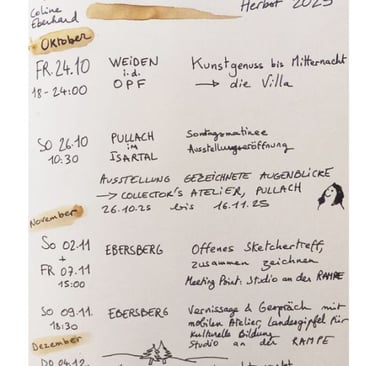 Coline
Eberhard
Herbst 2025
Oktober
FR. 24.10
18 - 24:00
WEIDEN
i.d.
OPF
Kunstgenuss bis Mitternacht
→ die Villa
SO 26.10
10:30
PULLACH
im
ISARTAL
Sontagsmatinee
Ausstellungseröffnung
AUSSTELLUNG GEZEICHNETE AUGENBLICKE
→ COLLECTOR'S ATELIER, PULLACH
26.10.25 bis 16.11.25
November
SO 02.11
+
FR 07.11
15:00
EBERSBERG
Offenes Sketchertreff,
zusammen zeichnen
Meeting Point: Studio an der RAMPE
SO 09.11.
18:30
EBERSBERG
Vernissage & Gespräch mit
mobilen Atelier, Landesgipfel für
kulturelle Bildung
Studio an der RAMPE
Dezember
DO 04.12.